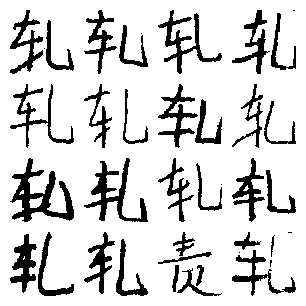 轧轧轧轧
轧轧轧轧
轧轧轧轧
轧轧责轧